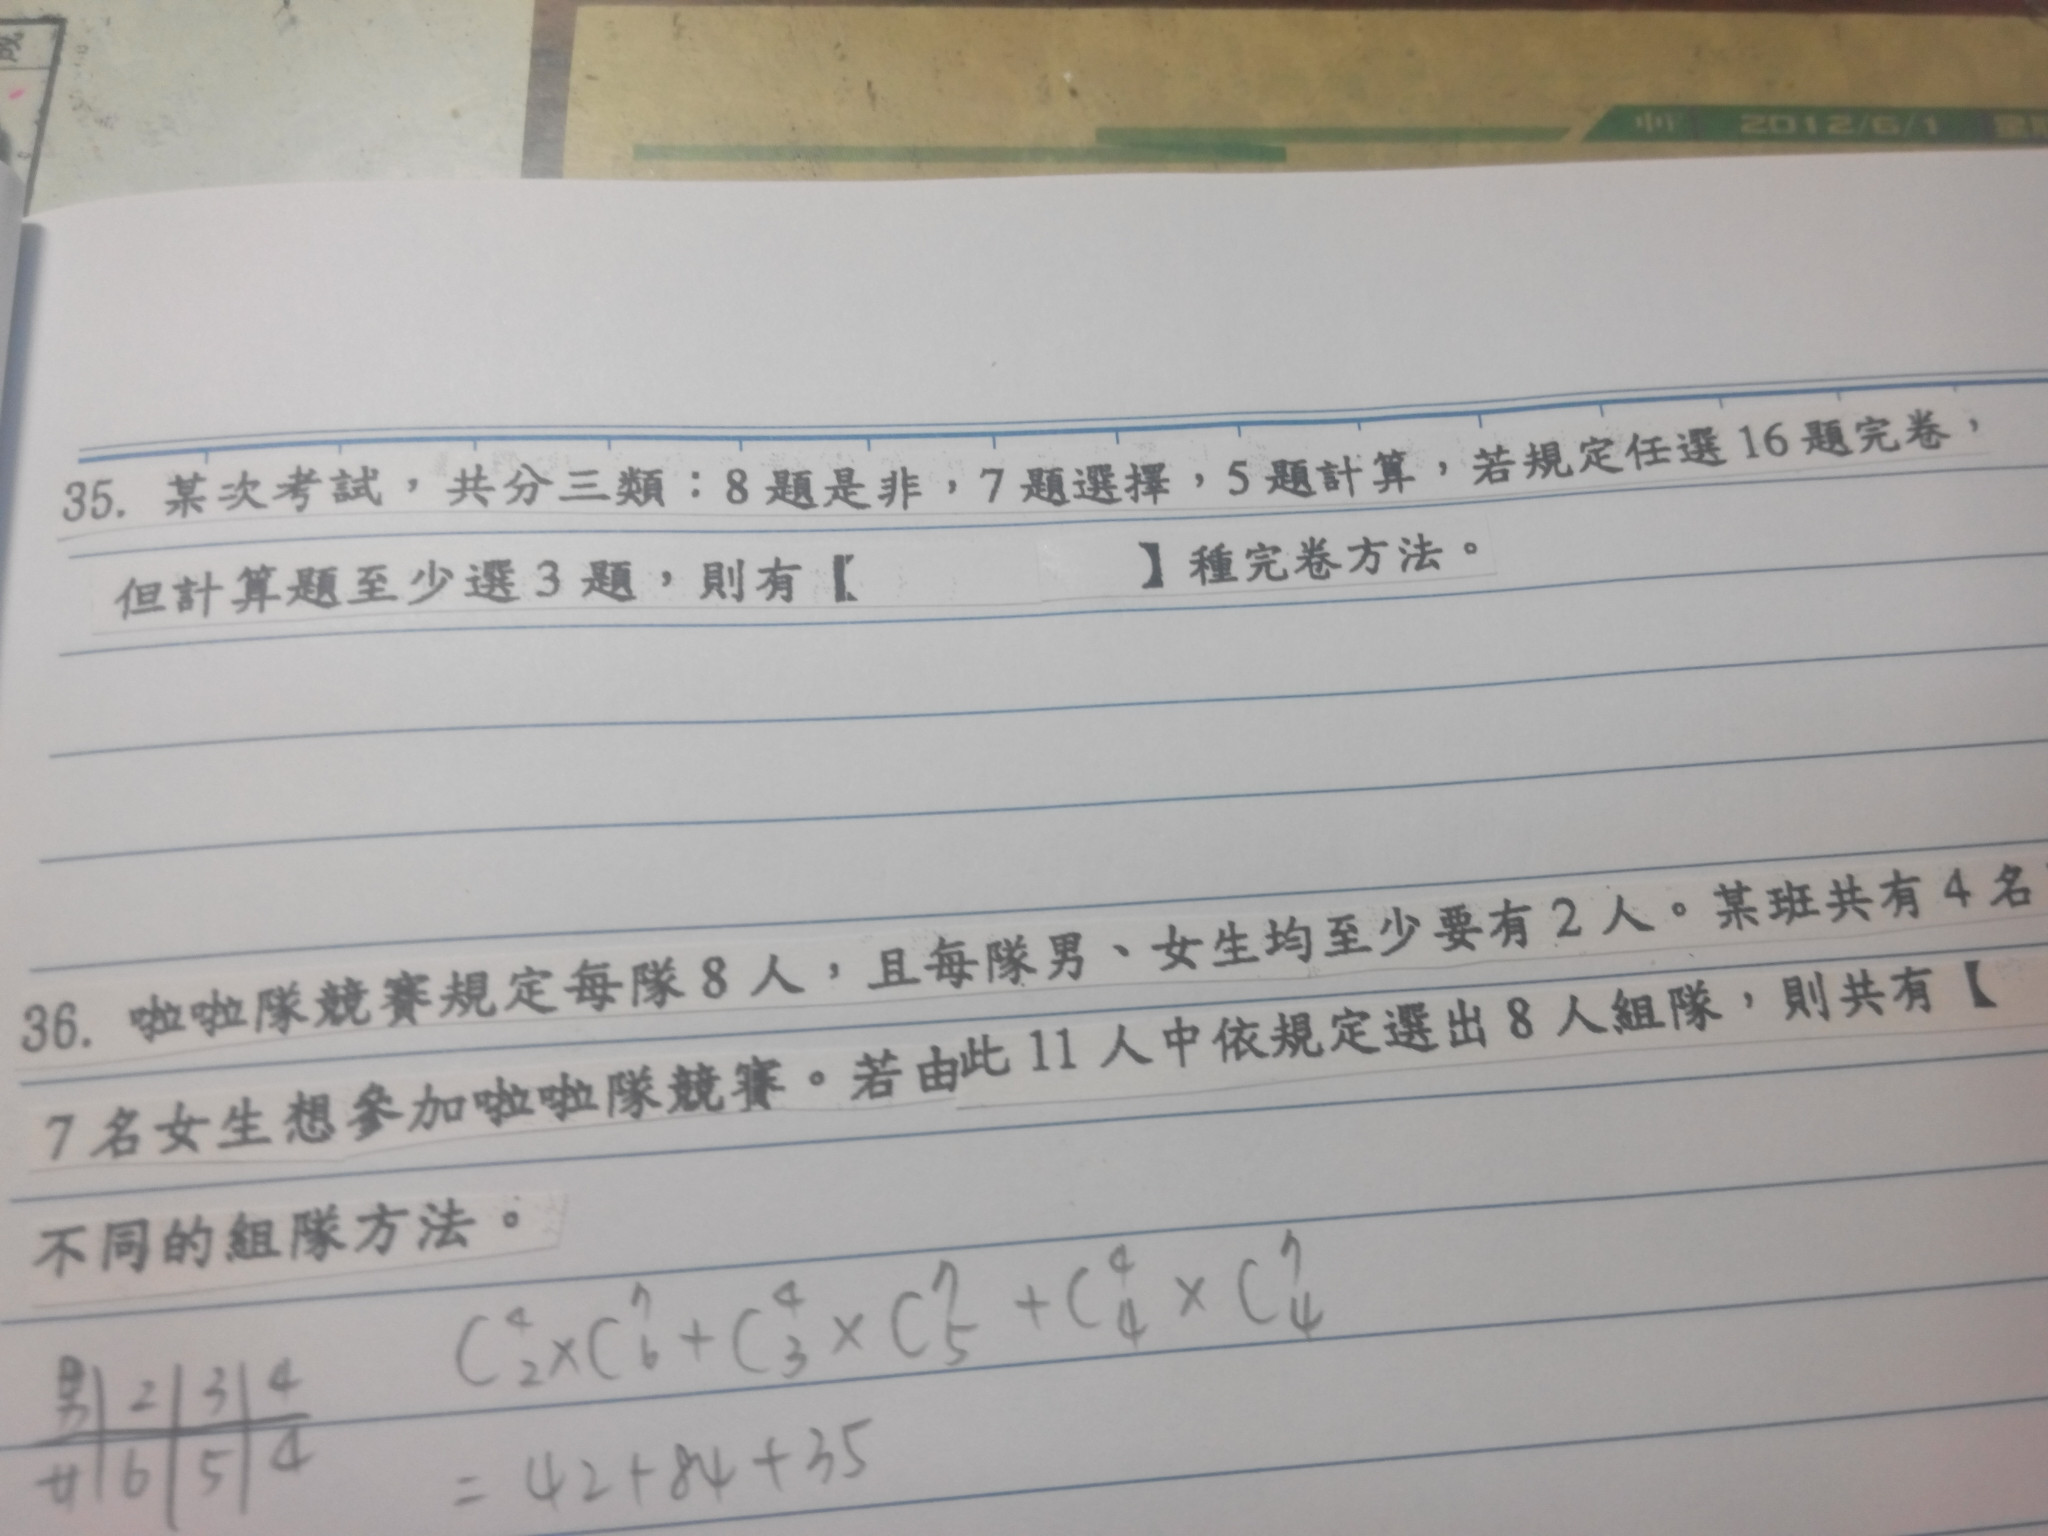 2012/6/1
35. 某次考試，共分三類：8題是非，7題選擇，5題計算，若規定任選16題完卷，
但計算題至少選3題，則有【　　　】種完卷方法。
36. 啦啦隊競賽規定每隊8人，且每隊男、女生均至少要有2人。某班共有4名
7名女生想參加啦啦隊競賽。若由此11人中依規定選出8人組隊，則共有【
不同的組隊方法。
C⁴₂×C⁷₆+C⁴₃×C⁷₅+C⁴₄×C⁷₄
男|2|3|4
女|6|5|4
=42+84+35